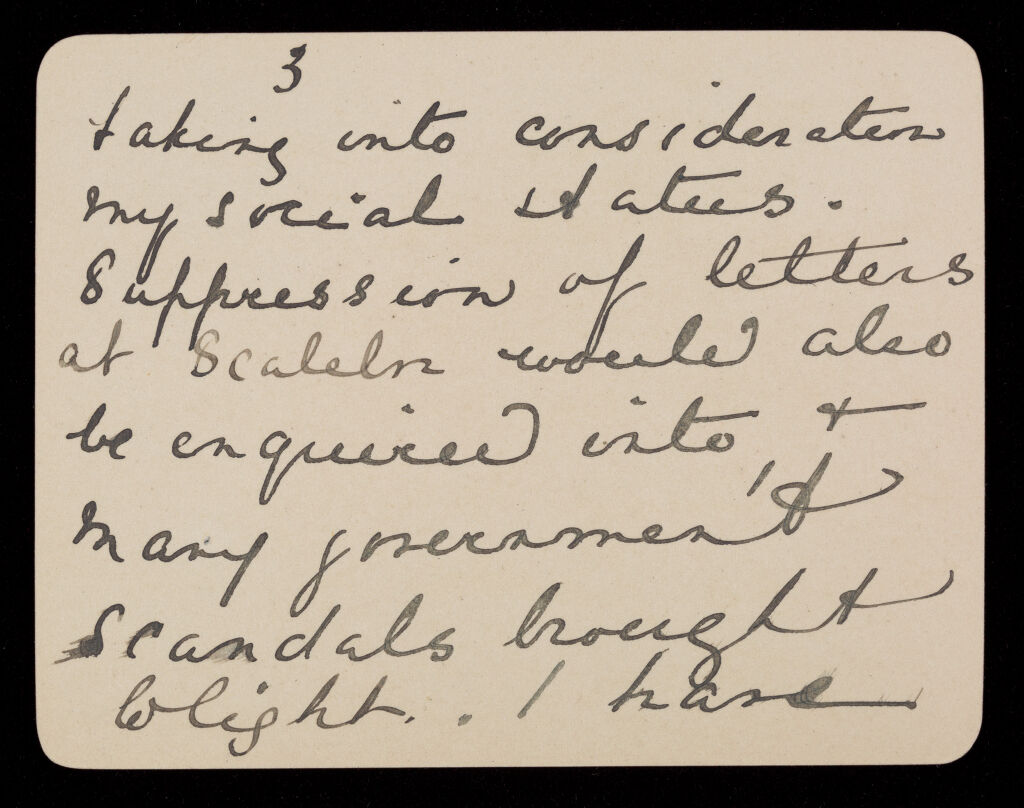 3
taking into consideration
my social status.
Suppression of letters
at would also
be enquired into, &
many government
scandals brought
to light. . I have